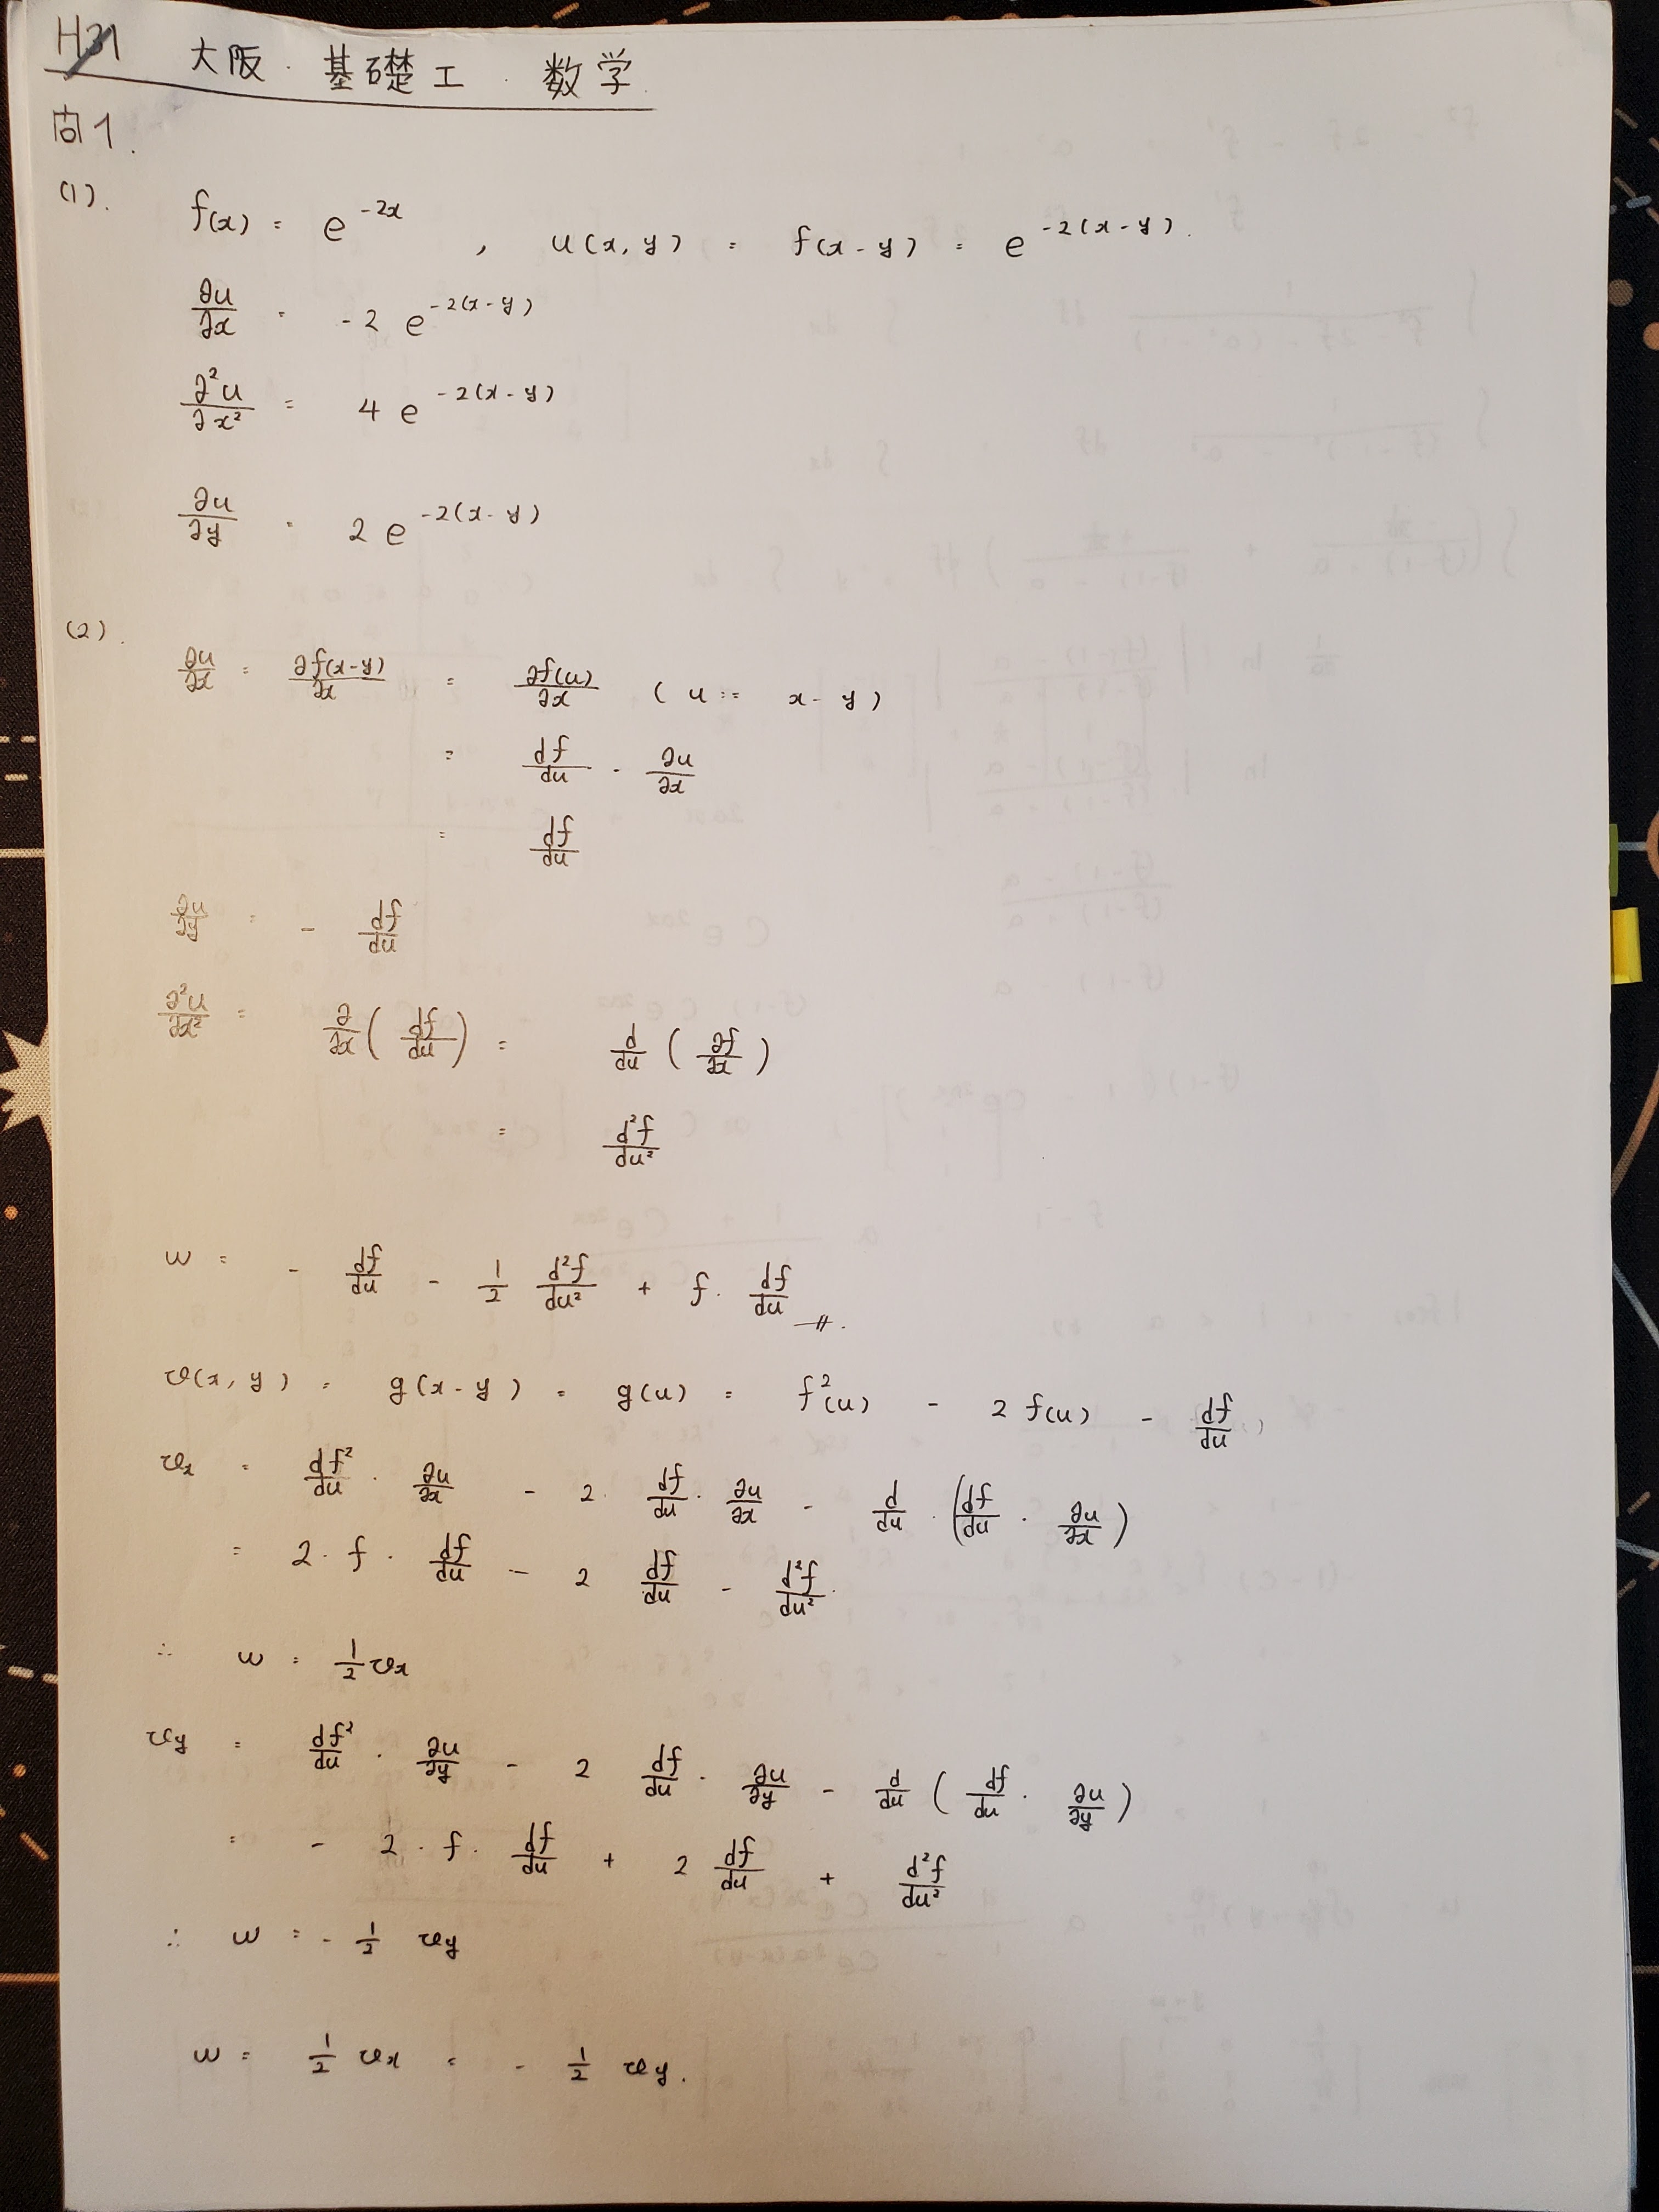 H31 大阪・基礎工・数学
問1.
(1). f(x) = e^{-2x}, u(x,y) = f(x-y) = e^{-2(x-y)}.
∂u/∂x = -2 e^{-2(x-y)}
∂²u/∂x² = 4 e^{-2(x-y)}
∂u/∂y = 2 e^{-2(x-y)}
(2).
∂u/∂x = ∂f(x-y)/∂x = ∂f(u)/∂x (u := x-y)
= df/du · ∂u/∂x
= df/du
∂u/∂y = - df/du
∂²u/∂x² = ∂/∂x (df/du) = d/du (∂f/∂x)
= d²f/du²
w = - df/du - 1/2 d²f/du² + f · df/du
v(x,y) = g(x-y) = g(u) = f²(u) - 2f(u) - df/du
vx = df²/du · ∂u/∂x - 2 · df/du · ∂u/∂x - d/du · (df/du · ∂u/∂x)
= 2 · f · df/du - 2 df/du - d²f/du².
∴ w = 1/2 vx
vy = df²/du · ∂u/∂y - 2 df/du · ∂u/∂y - d/du (df/du · ∂u/∂y)
= - 2 · f · df/du + 2 df/du + d²f/du²
∴ w = - 1/2 vy
w = 1/2 vx = - 1/2 vy.